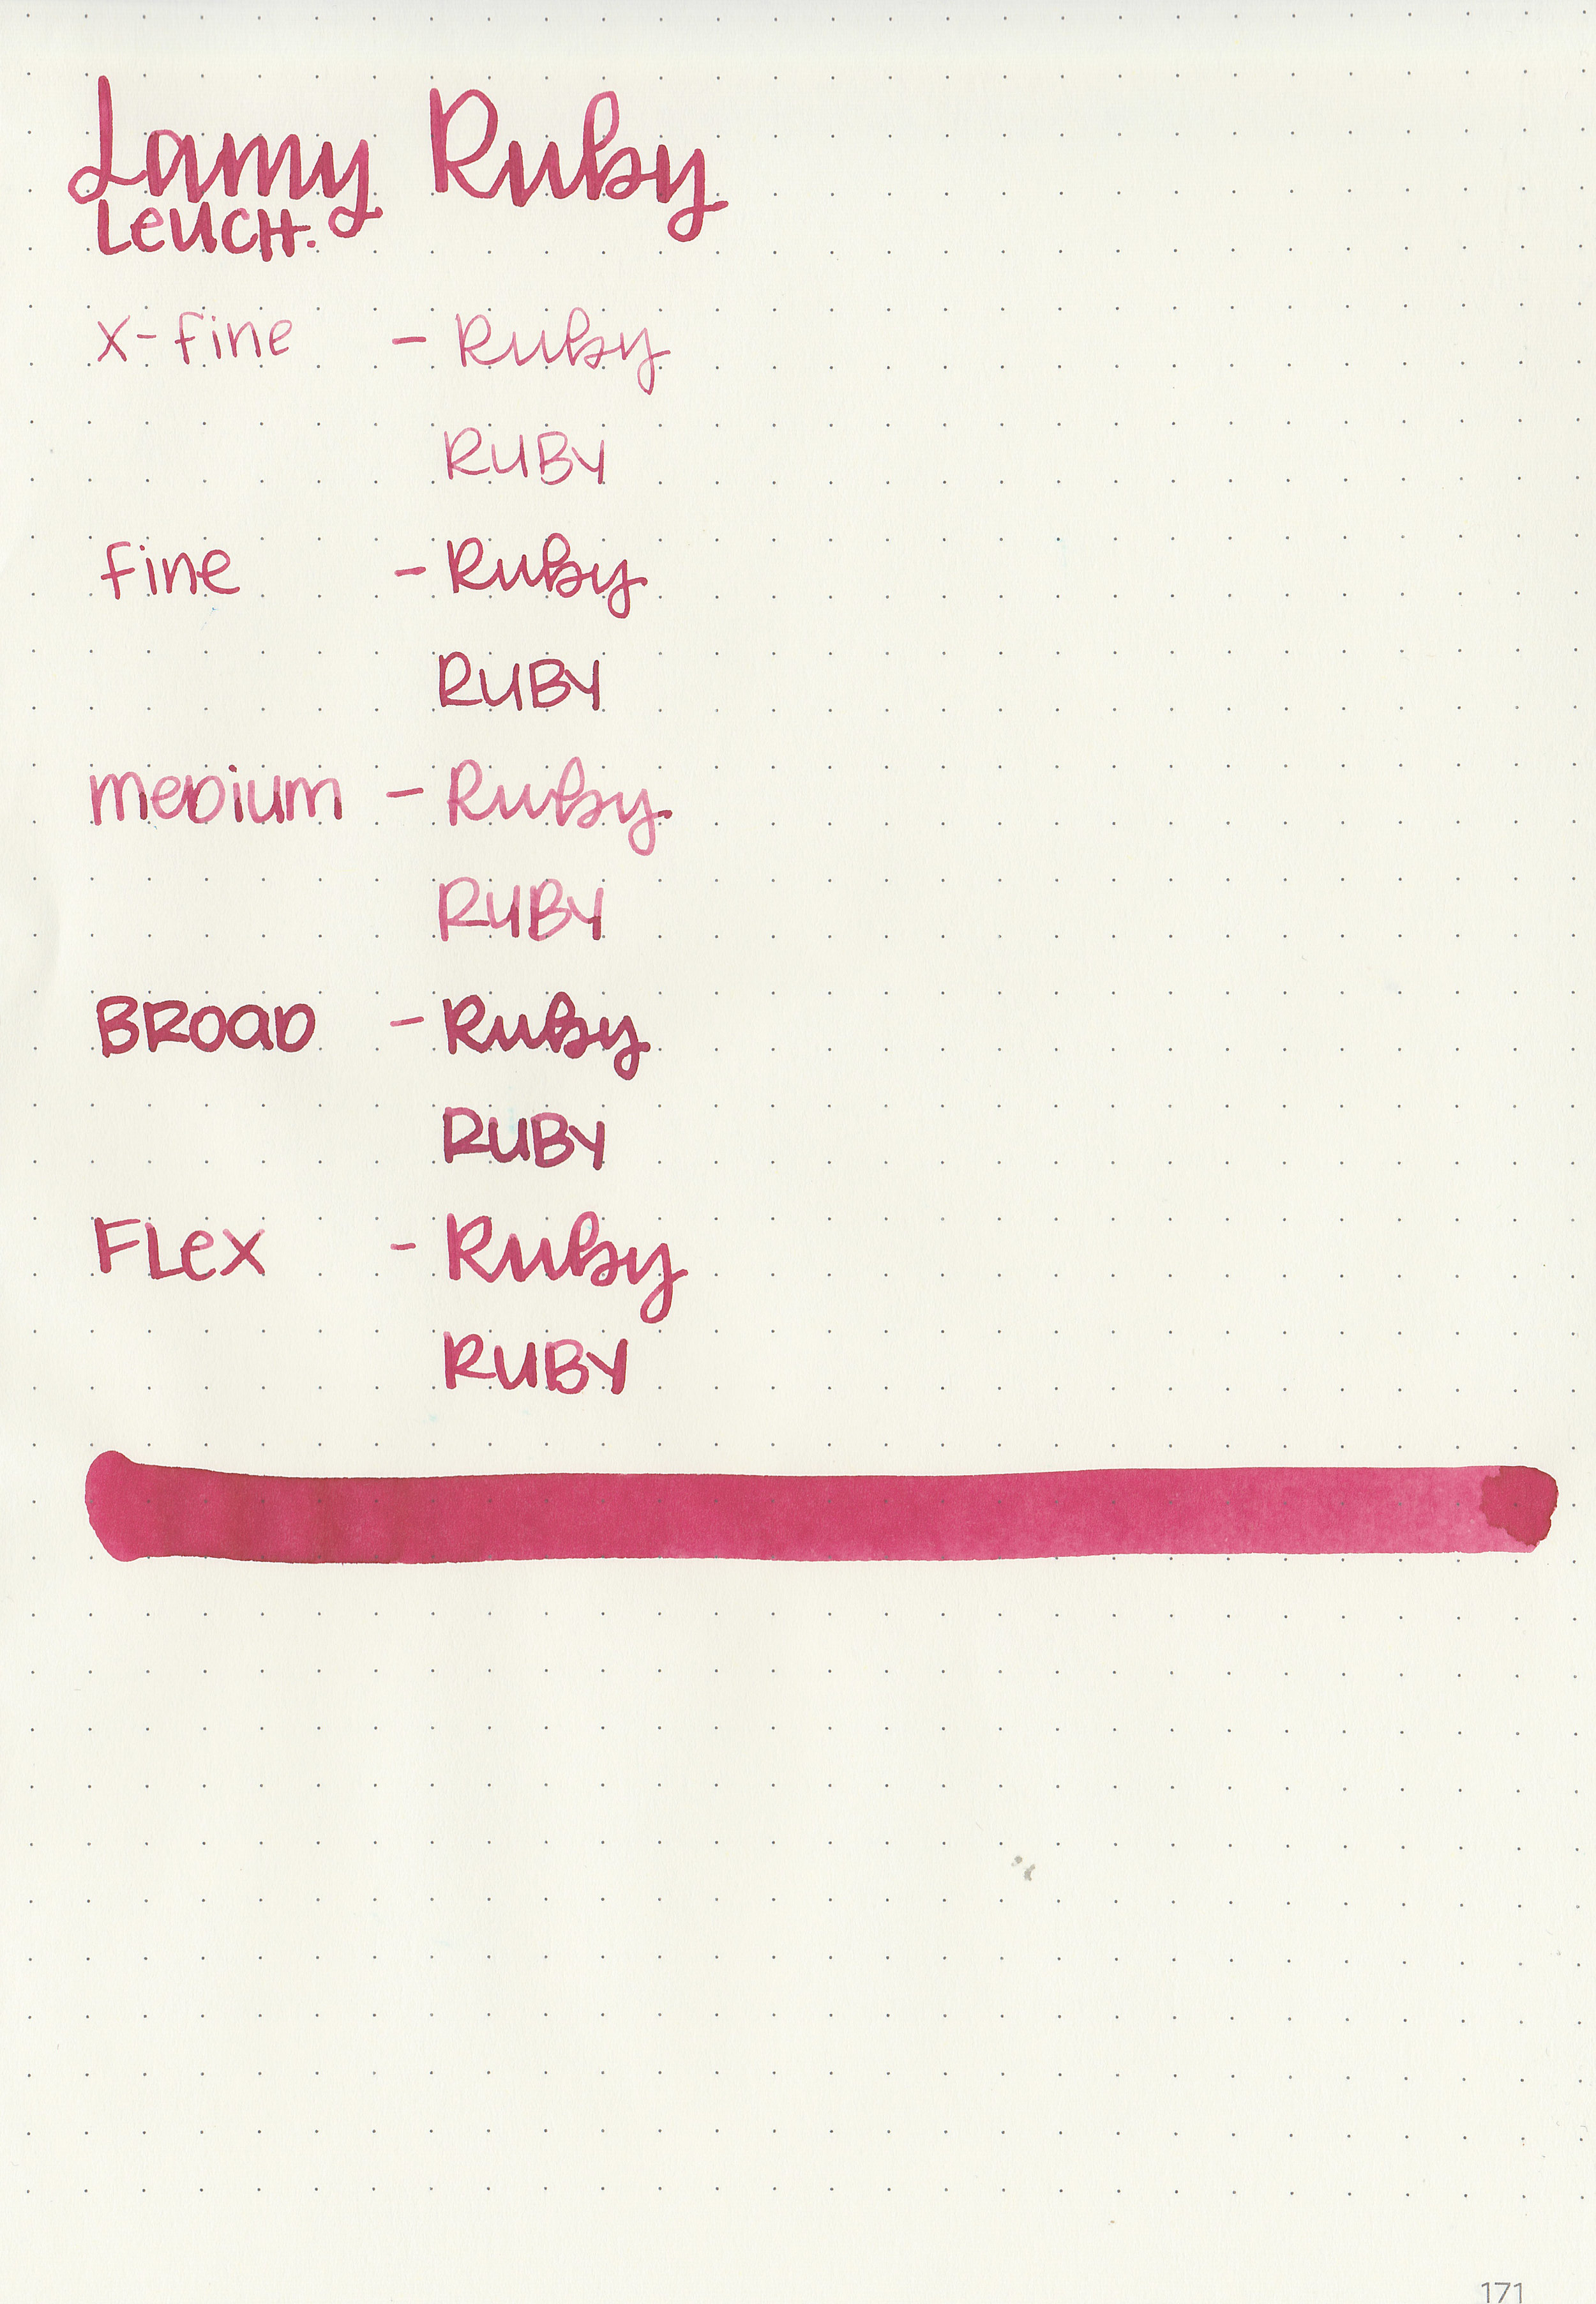 Lamy Ruby
Leuch.
x-fine - Ruby
RUBY
fine - Ruby
RUBY
medium - Ruby
RUBY
Broad - Ruby
RUBY
Flex - Ruby
RUBY
171